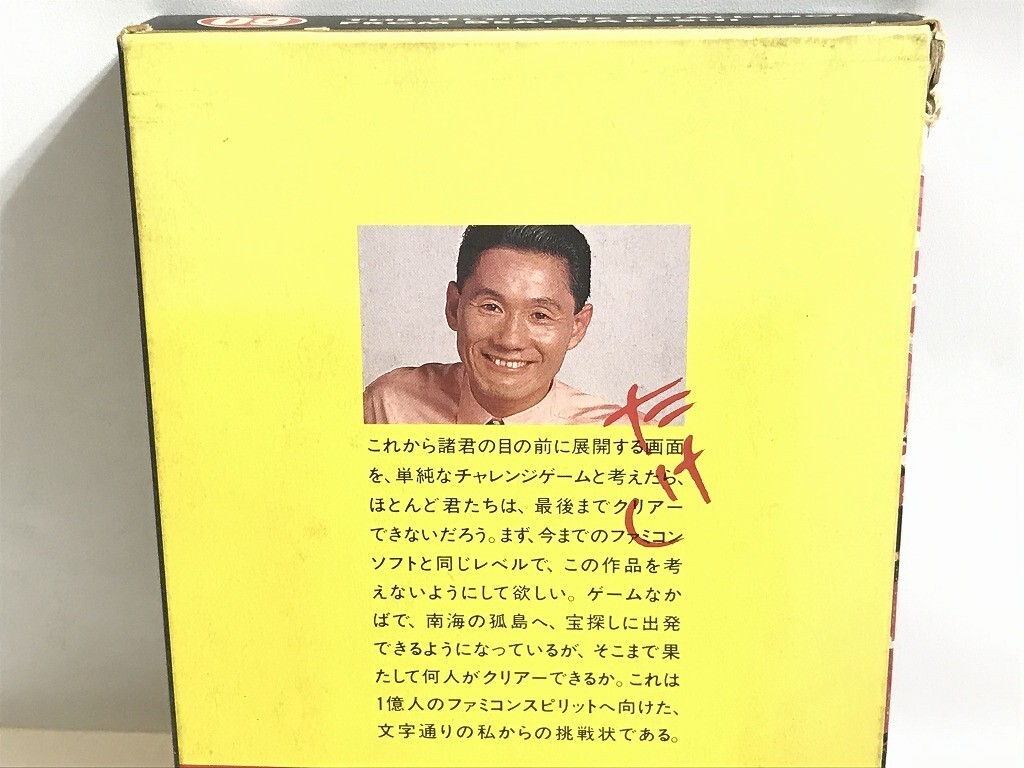 09
たけし
これから諸君の目の前に展開する画面
を、単純なチャレンジゲームと考えたら、
ほとんど君たちは、最後までクリアー
できないだろう。まず、今までのファミコン
ソフトと同じレベルで、この作品を考
えないようにして欲しい。ゲームなか
ばで、南海の孤島へ、宝探しに出発
できるようになっているが、そこまで果
たして何人がクリアーできるか。これは
1億人のファミコンスピリットへ向けた、
文字通りの私からの挑戦状である。